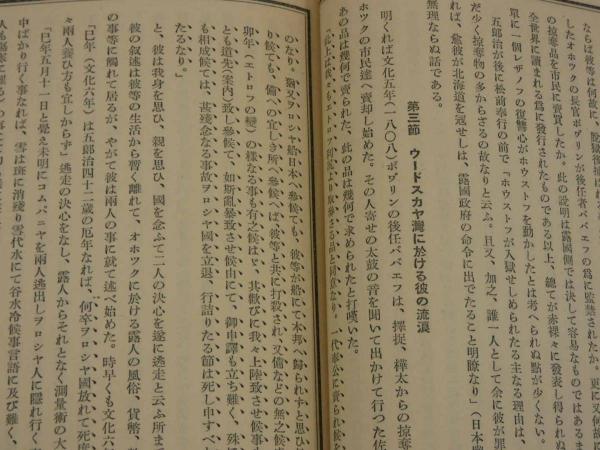 ならば彼等は何故に、脱獄後捕は
したオホックの長官ボヴリンが後任者バベエフの爲に監禁されたか。更に又何故に
の掠奪品を市民に賣買したか。此の説明は露國側では決して容易なものではあるま
全世界に讀まれる爲に發行されたものである以上、總てが赤裸々に發表し得られぬ
單に一個レザノフの復讐心がホウストフを動かしたとは考へられぬ點が少くない。
五郎治が後に松前奉行の前で「ホウストフが入獄せしめられたる主なる理由は、
だ少く掠奪物の多からざるの故なりと云ふ。且又、加之、誰一人として余に彼が罪
れば、意彼が北海道を冦せしは、露國政府の命令に出でたること明瞭なり」（日本
無理ならぬ話である。
第三節 ウードスカヤ灣に於ける彼の流浪
明くれば文化五年（一八〇八）ボヴリンの後任バベエフは、擇捉、樺太からの掠奪
ホツクの市民達へ賣却し始めた。その人寄せの太鼓の音を聞いて出かけて行つた佐
あの品は幾何で賣られた、此の品は幾何で求められたと打嘆いた。
のなり、猶又ヲロシヤ船日本へ參候ても、彼等が船にて本邦へ歸られずと思ひ
り候ても、備への宜しき所へ參候へば彼等と共に打殺され、又備などの無之候
卯年（エトロフの變）の様なる事も有之候はゞ、其歡びに我々上陸致させ候事
とも道先（案内）致し參候て、如斯亂暴致させ候由にて、御申譯も立ち難く、殊
も相成候ては、甚殘念なる事故ヲロシヤ國を立退、行詰りたる節は死し申すべ
たるなり。」
と、彼は我身を思ひ、親を思ひ、國を念ふて二人の決心を遂に逃走と云ふ所ま
彼の叙述は彼等の生活から暫く離れて、オホツクに於ける露人の風俗、貨幣、
の事等に觸れて居るが、やがて彼は兩人の事に就て述べ始めた。時早くも文化六
「巳年（文化六年）は五郎治四十二歳の厄年なれば、何卒ヲロシヤ國放れて死
々兩人養ひ方も宜しからず」逃走の決心をなし、露人からそれとなく測量術の大
「巳年五月十一日と覺え未明にコムパニヤを兩人逃出しヲロシヤ人に隱れ行く
中ばかり行く事なれば、雪は斑に消殘り雪代水にて谷水冷候事言語に及び難く、